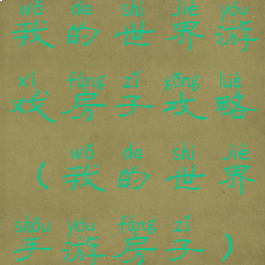 wǒ de shì jiè yóu
我的世界游
xì fáng zǐ gōng lüè
戏房子攻略
wǒ de shì jiè
（我的世界
shǒu yóu fáng zǐ
手游房子）